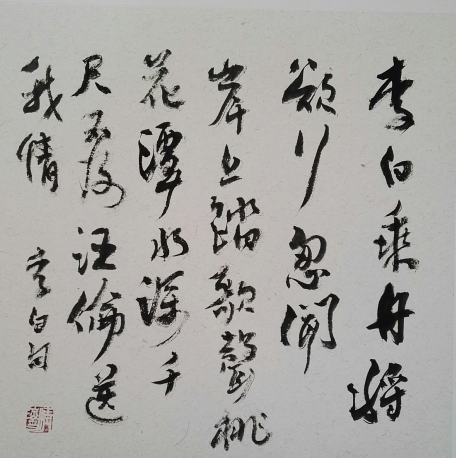 李白乘舟將
欲行忽聞
岸上踏歌聲桃
花潭水深千
尺不及汪倫送
我情
白詩